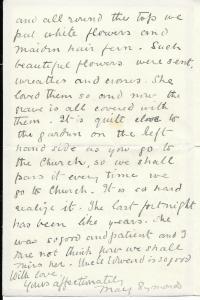 and all round the top we
put white flowers and
maiden hair fern. Such
beautiful flowers were sent,
wreathes and crosses. She
loved them so and now the
grave is all covered with
them. It is quite close to
the garden on the left
hand side as you go to
the Church, so we shall
pass it every time we
go to Church. It is so hard
realize it. The last fortnight
has been like years. She
was so good and patient and I
dare not think how we shall
miss her. Uncle Edward is so good
With love.
Yours affectionately
Mary